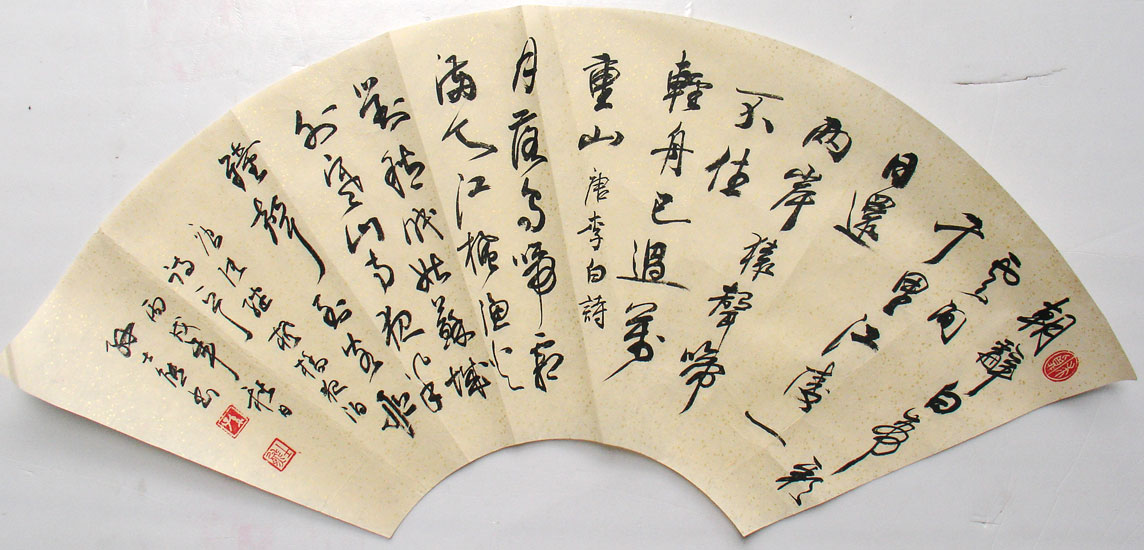 朝辭白帝彩
雲間
千里江陵一
日還
兩岸猿聲啼
不住
輕舟已過萬
重山 唐李白詩
月落烏啼霜
滿天江楓漁火
對愁眠姑蘇城
外寒山寺夜半
鐘聲到客船
唐張繼楓橋夜泊
詩一首
丙戌年秋日
書